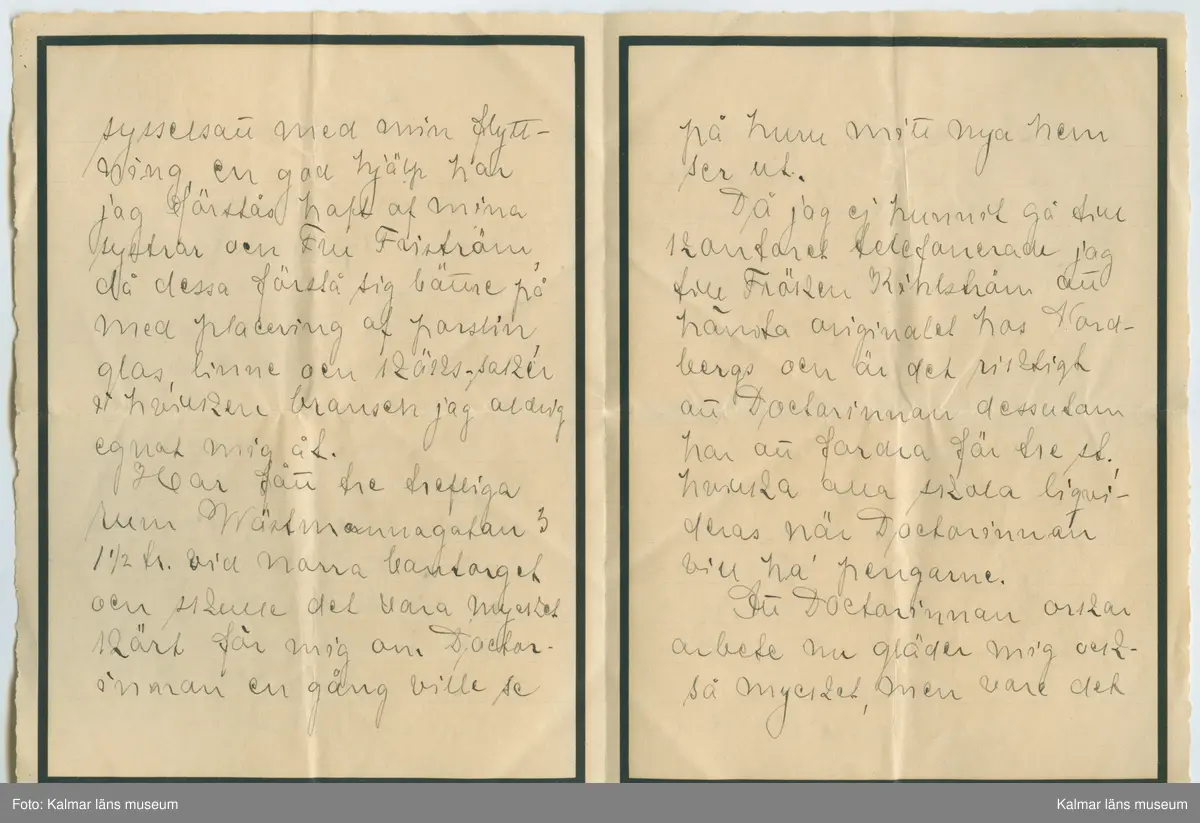 sysselsatt med min flytt-
ning, en god hjälp har
jag förstås haft af mina
systrar och Fru Friström,
då dessa förstå sig bättre på
med placering af porslin,
glas, linne och köks-saker
i hvilken bransch jag aldrig
egnat mig åt.
Har fått tre trefliga
rum Wästmannagatan 3
1 1/2 tr. vid norra bantorget
och skulle det vara mycket
kärt för mig om Doctor-
innan en gång ville se
på huru mitt nya hem
ser ut.
Då jag ej hunnit gå till
kontoret telefonerade jag
till Fröken Kihlström att
hämta originalet hos Nord-
bergs och är det riktigt
att Doctorinnan dessutom
har att fordra för tre st.,
hvilka alla skola liqvi-
deras när Doctorinnan
vill ha pengarne.
Att Doctorinnan orkar
arbete nu gläder mig ock-
så mycket, men vare det
Foto: Kalmar läns museum
Kalmar läns museum